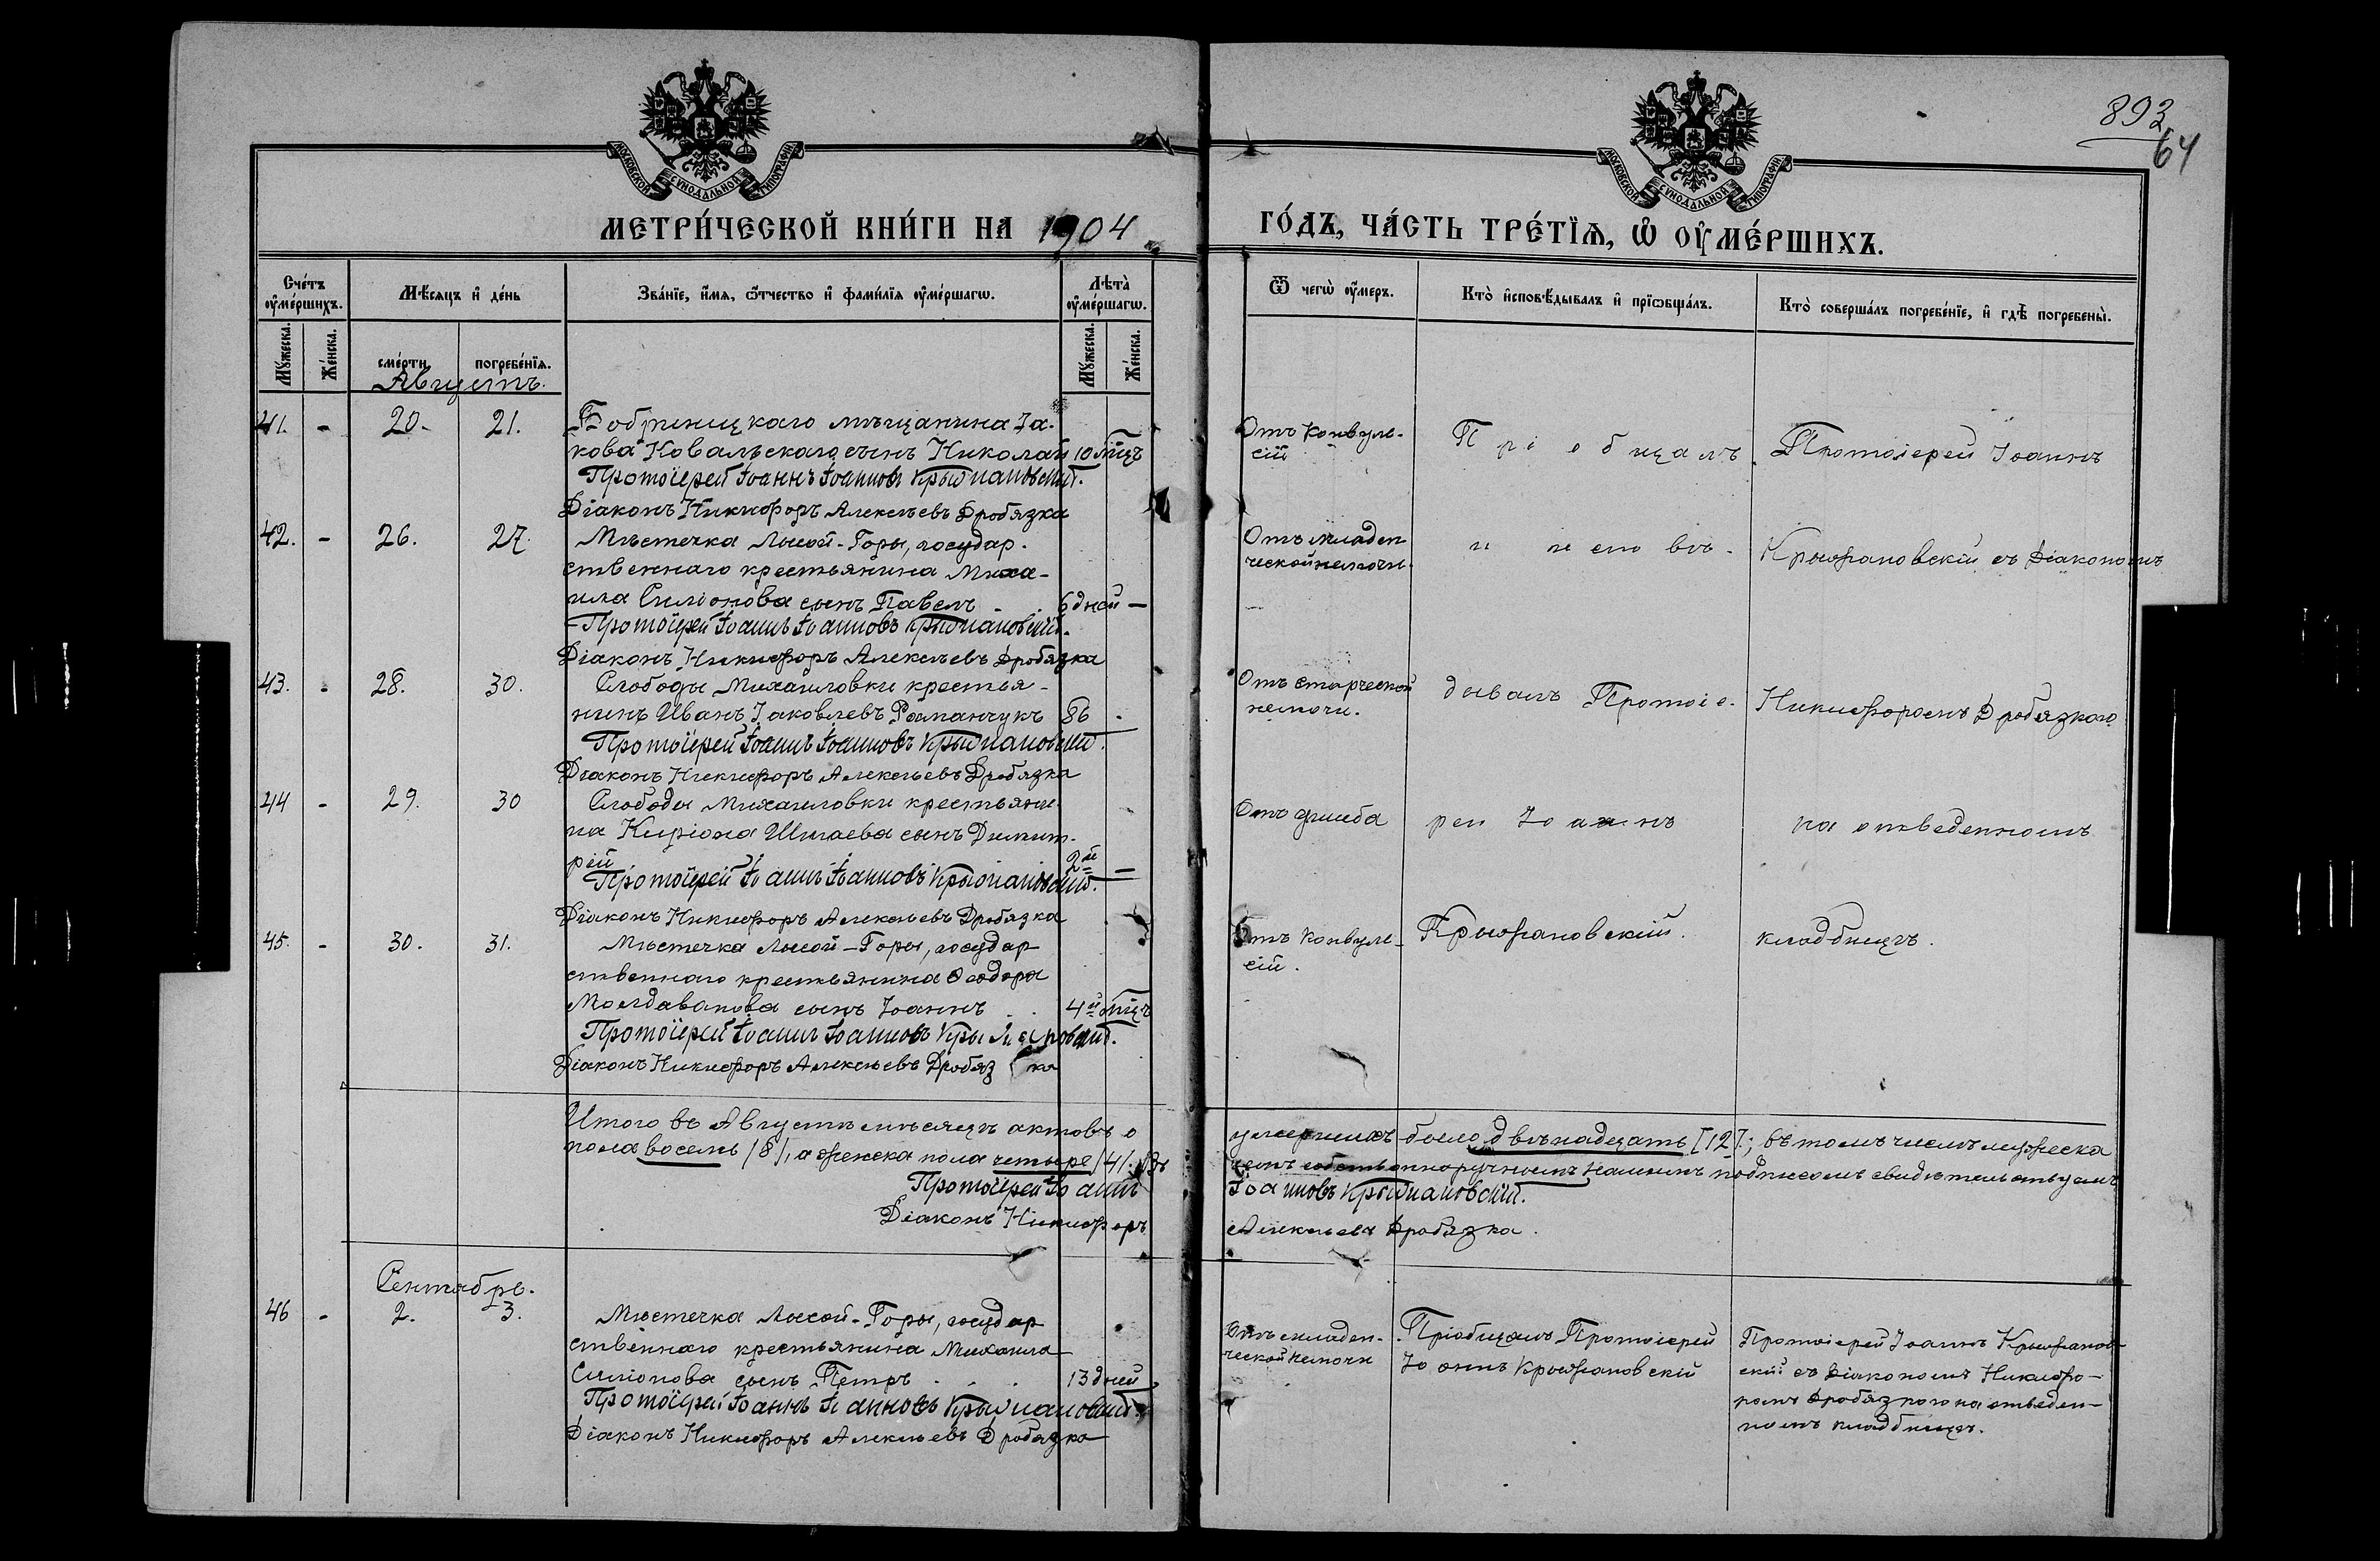 893
64
МОСКОВСКОЙ СѴНОДАЛЬНОЙ ТИПОГРАФІИ
МОСКОВСКОЙ СѴНОДАЛЬНОЙ ТИПОГРАФІИ
МЕТРИ́ЧЕСКОЙ КНИ́ГИ НА 1904
ГО́ДЪ, ЧА́СТЬ ТРЕ́ТЇѦ, Ѡ҆ ОУ҆МЕ́РШИХЪ.
Сче́тъ оу҆ме́ршихъ.
Мѣ́сяцъ и҆ де́нь
Зва́нїе, и҆́мѧ, ѻ҆́тчество и҆ фами́лїѧ оу҆ме́ршагѡ.
Лѣ́та оу҆ме́ршагѡ.
Ѿ чегѡ̀ оу҆́меръ.
Кто̀ и҆сповѣ́дывалъ и҆ прїѡбща́лъ.
Кто̀ соверша́лъ погребе́нїе, и҆ гдѣ̀ погребены̀.
Мꙋ́жеска.
Же́нска.
сме́рти.
погребе́нїѧ.
Мꙋ́жеска.
Же́нска.
Августъ.
41. - 20. 21. Бобринецкаго мѣщанина Іа-
кова Ковальскаго сынъ Николай 10 мѣц.
Протоіерей Іоаннъ Іоанновъ Крыжановскій.
Діаконъ Никифоръ Алексѣевъ Дробязка
Отъ конвуль-
сій
Пріобщалъ
Протоіерей Іоаннъ
42. - 26. 27. Мѣстечка Лысой-Горы, государ-
ственнаго крестьянина Миха-
ила Симонова сынъ Павелъ . . 6 дней -
Протоіерей Іоаннъ Іоанновъ Крыжановскій.
Діаконъ Никифоръ Алексѣевъ Дробязка
Отъ младен-
ческой немочи.
и исповѣ-
Крыжановскій съ Діакономъ
43. - 28. 30. Слободы Михайловки крестья-
нинъ Иванъ Іаковлевъ Романчукъ 86 -
Протоіерей Іоаннъ Іоанновъ Крыжановскій.
Діаконъ Никифоръ Алексѣевъ Дробязка
Отъ старческой
немочи.
дывалъ Протоіе-
Никифоромъ Дробязкого
44 - 29. 30 Слободы Михайловки крестьяни-
на Киріона Шинаева сынъ Димит-
рій 2 й -
Протоіерей Іоаннъ Іоанновъ Крыжановскій.
Діаконъ Никифоръ Алексѣевъ Дробязка
рей Іоаннъ
на отведенномъ
45. - 30. 31. Мѣстечка Лысой-Горы, государ
ственнаго крестьянина Ѳеодора
Молдаванова сынъ Іоаннъ . . 4 й мѣц.
Протоіерей Іоаннъ Іоанновъ Крыжановскій.
Діаконъ Никифоръ Алексѣевъ Дробязка
Отъ конвуль-
сій.
Крыжановскій.
кладбищѣ.
Итого въ Августѣ мѣсяцѣ актовъ о умершихъ было двѣнадцать [12]; въ томъ числѣ мужеска
пола восемь /8/, а женска пола четыре /4/. Въ чемъ собственноручнымъ нашимъ подписомъ свидѣтельствуемъ
Протоіерей Іоаннъ Іоанновъ Крыжановскій.
Діаконъ Никифоръ Алексѣевъ Дробязка.
Сентябрь.
46 - 2. 3. Мѣстечка Лысой-Горы, государ
ственнаго крестьянина Михаила
Симонова сынъ Петръ . . . 13 дней
Протоіерей Іоаннъ Іоанновъ Крыжановскій.
Діаконъ Никифоръ Алексѣевъ Дробязка
Отъ младен-
ческой немочи
Пріобщалъ Протоіерей
Іоаннъ Крыжановскій
Протоіерей Іоаннъ Крыжанов-
скій съ Діакономъ Никифо-
ромъ Дробязкого на отведен-
номъ кладбищѣ.